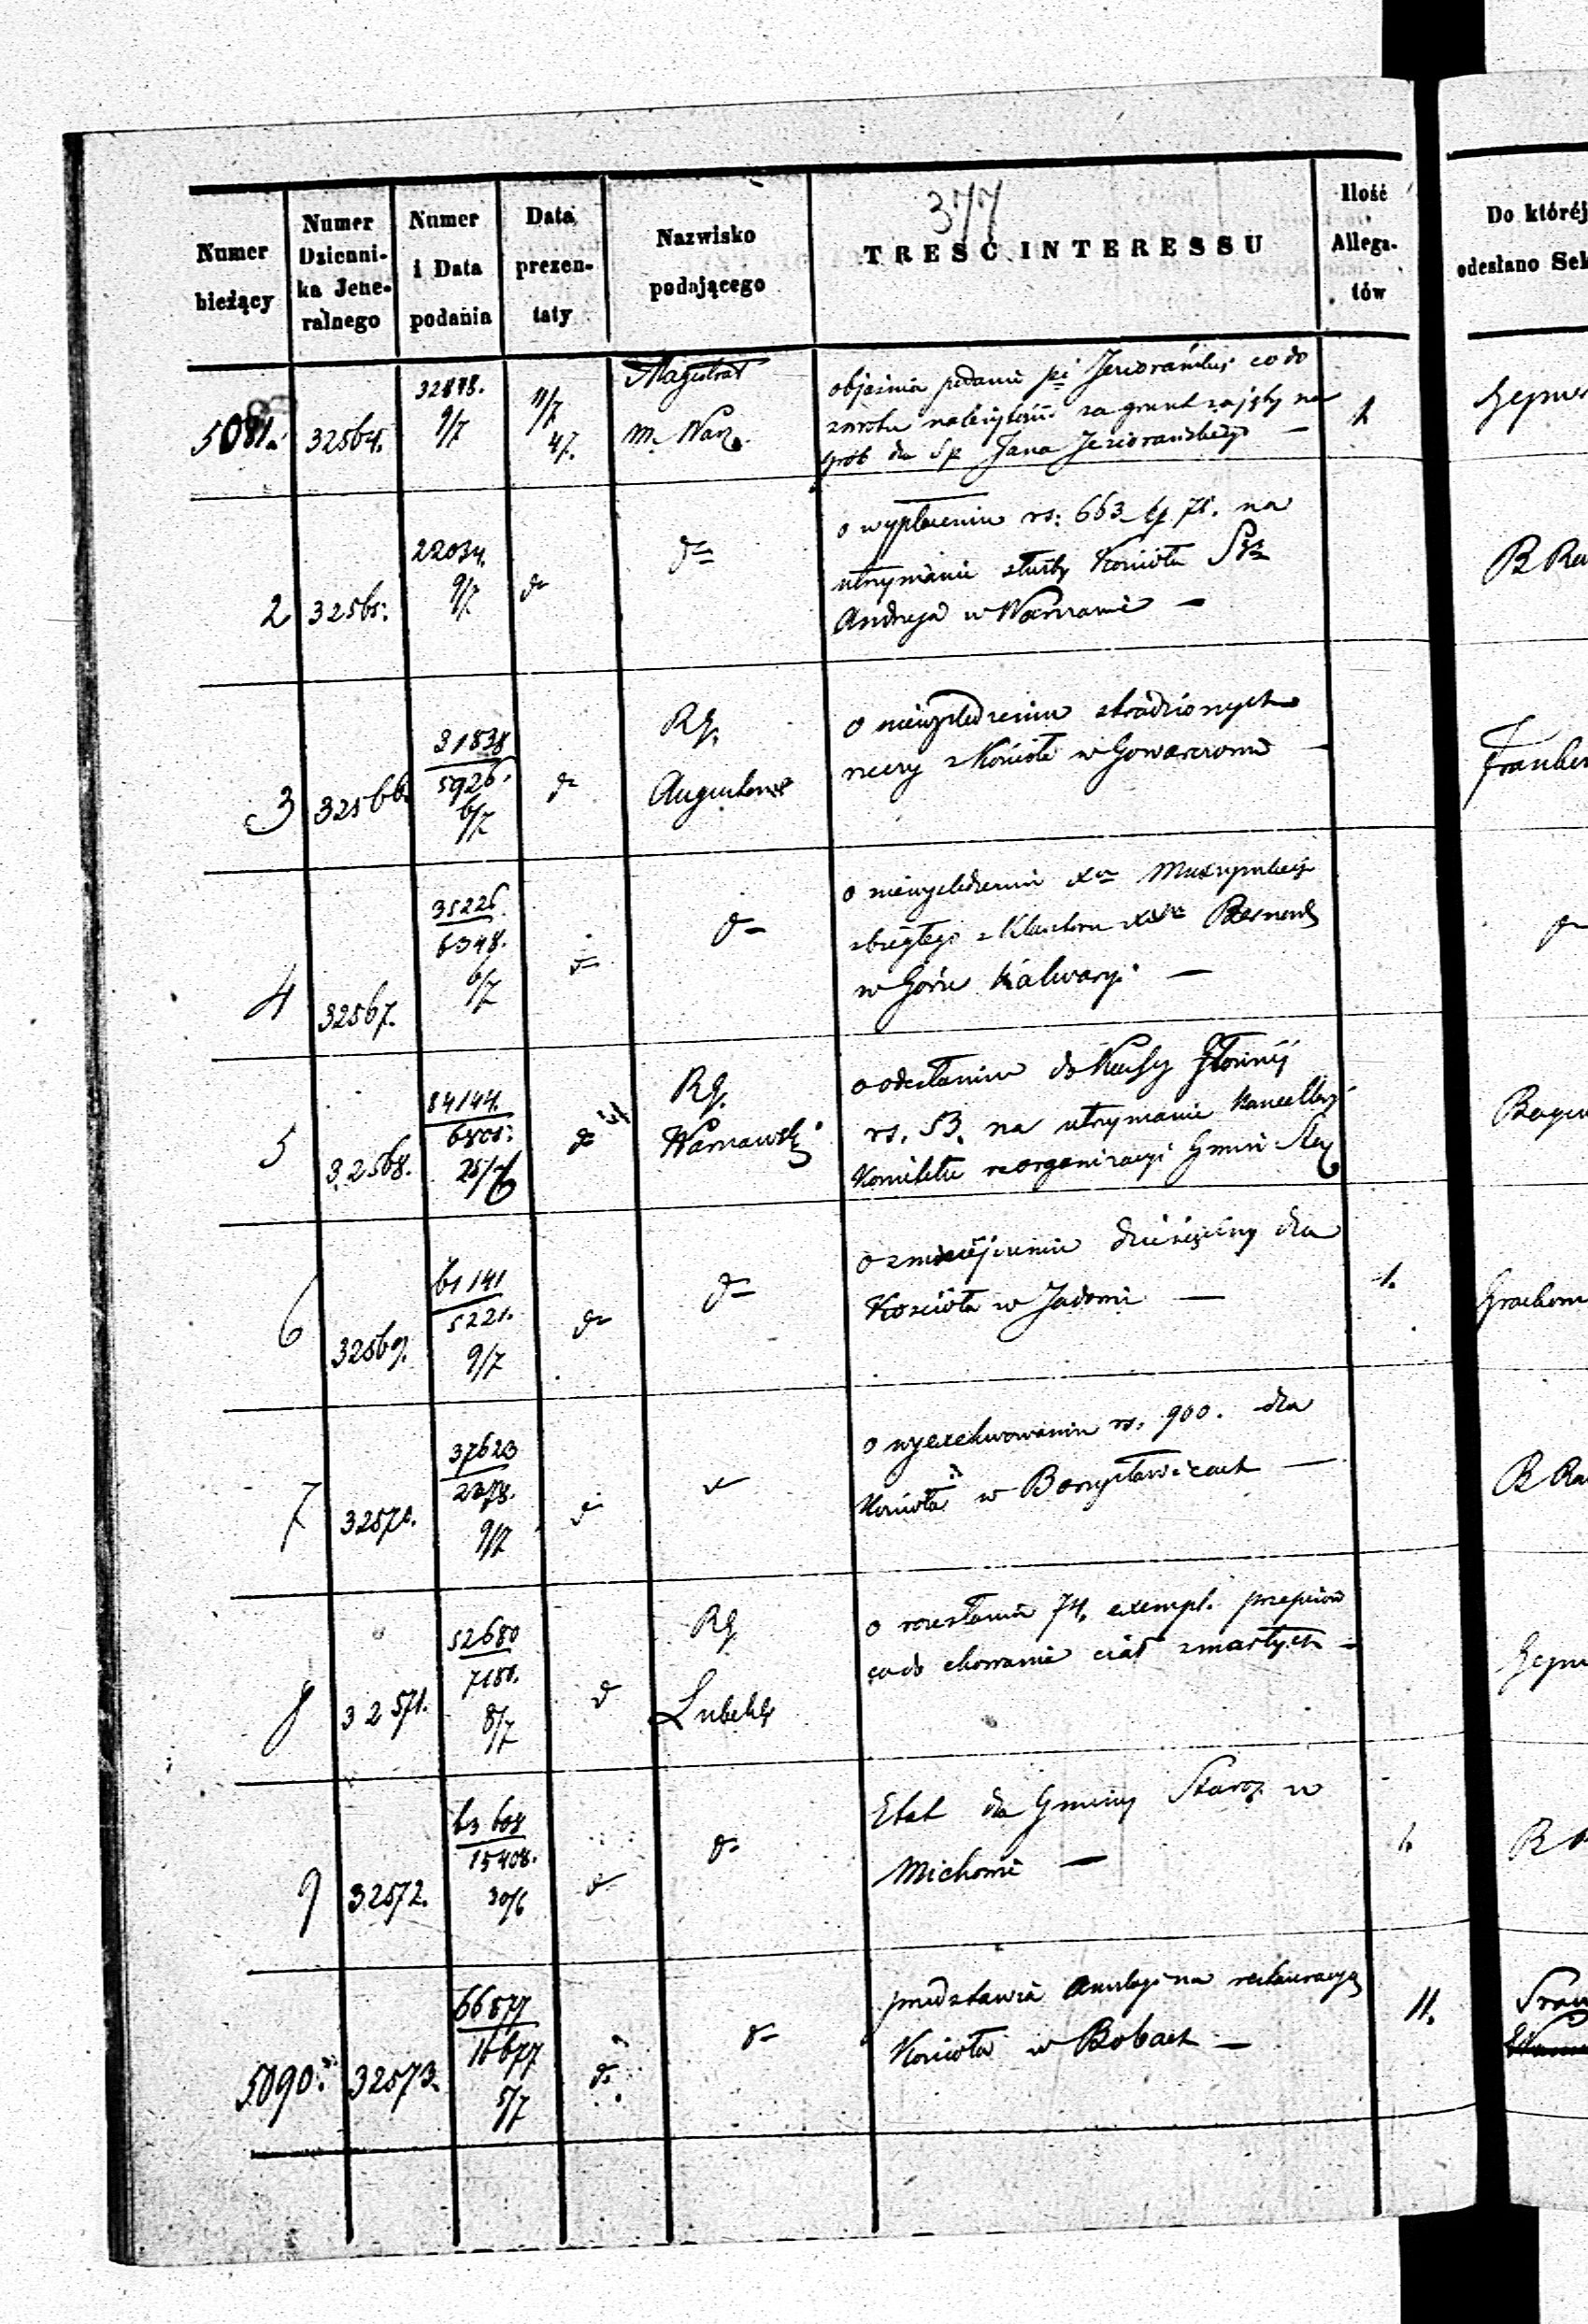 377
Numer bieżący
Numer Dzienni- ka Jene- ralnego
Numer i Data podania
Data prezen- taty
Nazwisko podającego
TRESC INTERESSU
Ilość Allega- tów
Do któréj odesłano Sek
5081. 32564. 32878. 9/7 11/7 47. Magistrat m. Warz.
objaśnia podanie Jeziorańskiej co do
zwrotu należytości za grunt zajęty na
grób dla śp Jana Jeziorańskiego —
2 32565. 22034. 9/7 do do
o wypłacenie rs: 663 k 75. na
utrzymanie służby Kościoła Sgo
Andrzeja w Warszawie —
B Ra
3 32566. 31838 5926. 6/7 do Rg. Augustows
o niewyśledzeniu skradzionych
rzeczy z Kościoła w Goworowie —
4 32567. 35226. 6348. 6/7 do do
o niewyśledzeniu xa
zbiegłego z Klasztoru xxy Bernard
w Górze Kalwaryi —
do
5 32568. 84144. 6801. 25/6 do Rg. Warszawski
o odesłaniu do Kassy Głównej
rs. 53. na utrzymanie Kancellaryi
Komitetu reorganizacyi Gmin Star
6 32569. 61141 5221. 9/7 do do
o zmniejszenie dziesięciny dla
Kościoła w Jadowie — 1.
Grachow
7 32570. 37623 2278. 9/7 do
o wyexekwowaniu rs. 900. dla
Kościoła w Borysławicach —
B Ra
8 32571. 52680 7180. 8/7 do Rg. Lubelski
o rozesłaniu 74. exempl. przepisów
co do chowania ciał zmarłych —
9 32572. 63608 15408. 30/6 do do
Etat dla Gminy Staroz. w
Michowie —
5090. 32573. 66877 16677 5/7 do do
przedstawia anszlagi na restauracyą
Kościoła w Bobach — 11.